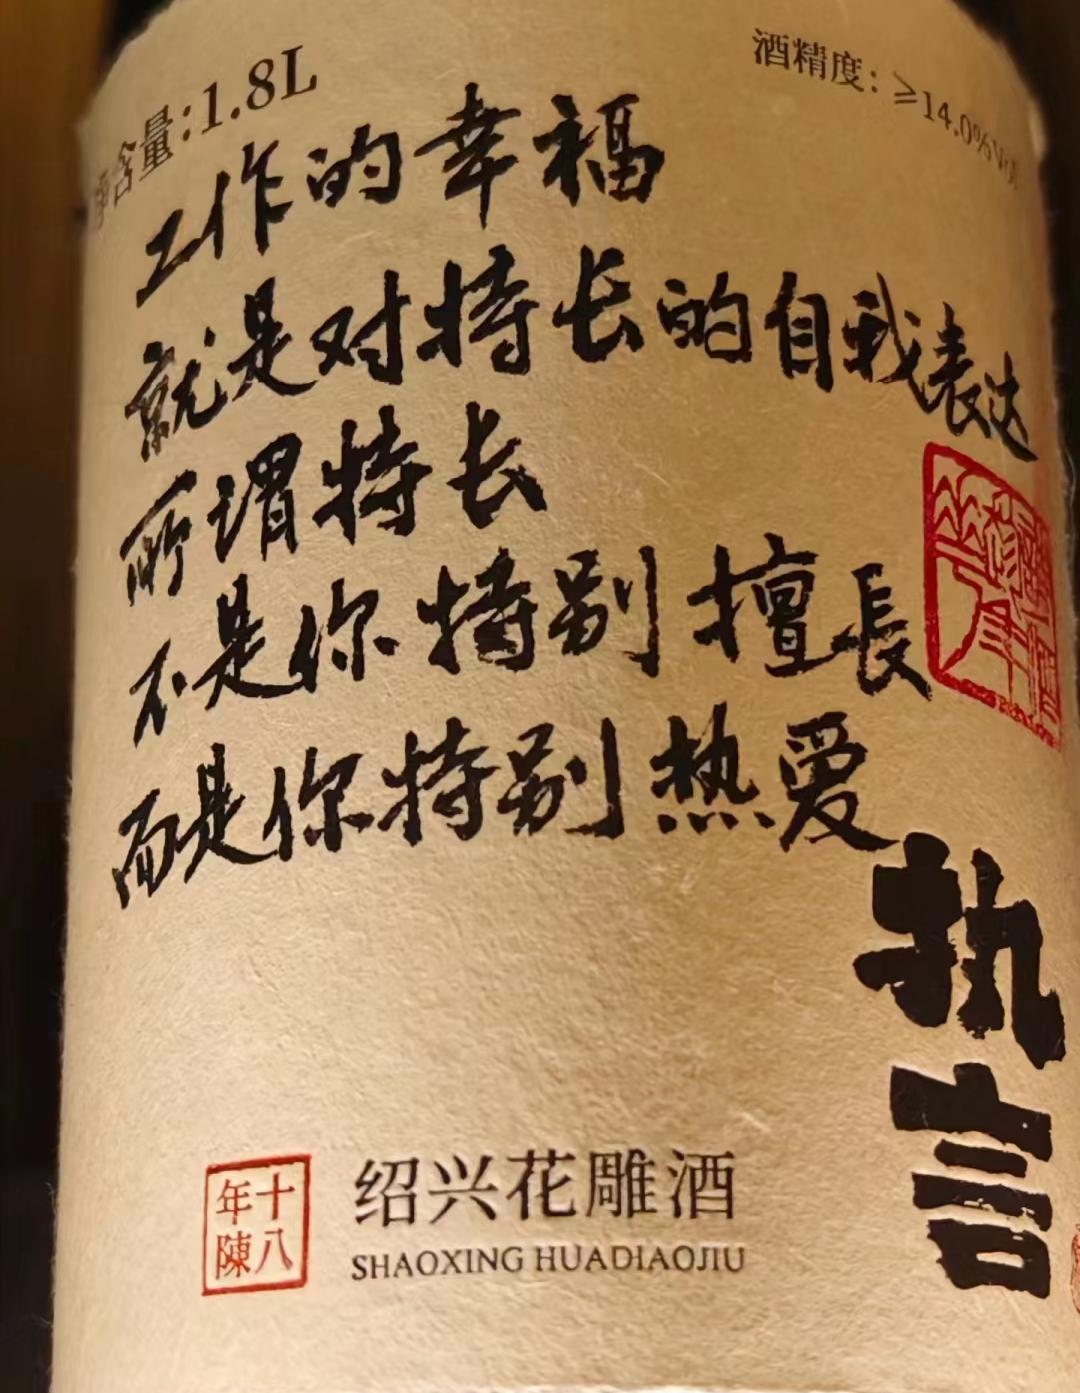 净含量:1.8L
酒精度: ≥14.0%vol
工作的幸福
就是对特长的自我表达
所谓特长
不是你特别擅長
而是你特别热爱
执言
十八年陳
绍兴花雕酒
SHAOXING HUADIAOJIU